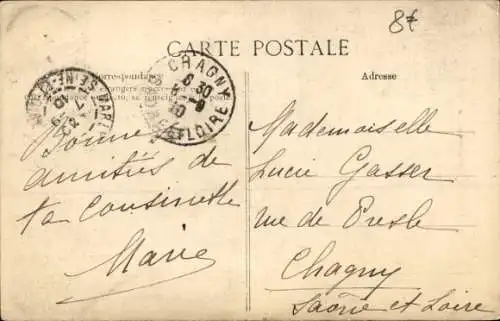 8€
CARTE POSTALE
Correspondance
Adresse
CHAGNY
6 30
SAONE-ET-LOIRE
Bonne
amitiés de
ta cousinette
Marie
Mademoiselle
Lucie Gasser
rue de Presle
Chagny
Saône et Loire